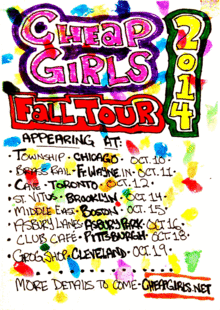 CHEAP
GIRLS
FALL TOUR
2014
APPEARING AT:
• TOWNSHIP • CHICAGO • OCT. 10 •
• BRASS RAIL • FT. WAYNE, IN • OCT. 11 •
• CAVE • TORONTO • OCT. 12 •
• ST. VITUS • BROOKLYN • OCT. 14 •
• MIDDLE EAST • BOSTON • OCT. 15 •
• ASBURY LANES • ASBURY PARK • OCT 16 •
• CLUB CAFÉ • PITTSBURGH • OCT 18 •
• GROG SHOP • CLEVELAND • OCT. 19 •
MORE DETAILS TO COME • CHEAPGIRLS.NET